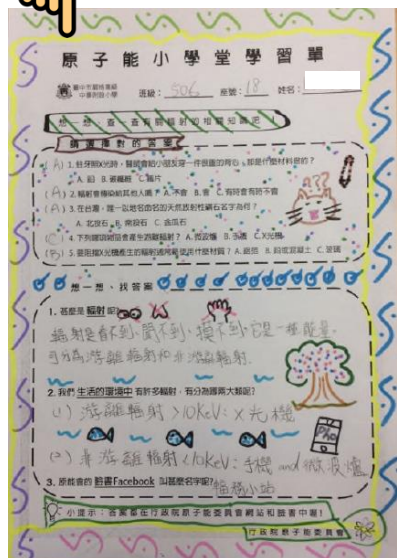 原子能小學堂學習單
臺中市龍峰書院 中華附設小學 班級：506 座號：18 姓名：
想一想，查一查有關輻射的相關知識吧！
請選擇對的答案
(A) 1. 照牙照X光時，醫師會給小朋友穿一件很重的背心，那是什麼材料做的？
A. 鉛 B. 玻璃纖 C. 鐵片
(A) 2. 輻射會傳染給其他人嗎？ A. 不會 B. 會 C. 有時會有時不會
(A) 3. 在台灣，唯一以地名命名的天然放射性礦石名字為何？
A. 北投石 B. 南投石 C. 金瓜石
(C) 4. 下列哪項物品會產生游離輻射？ A. 微波爐 B. 手機 C. X光機
(B) 5. 要阻擋X光機產生的輻射通常會使用什麼材質？ A. 紙張 B. 鉛或混凝土 C. 玻璃
想一想、找答案
1. 甚麼是輻射呢？
輻射是看不到、聞不到、摸不到，它是一種能量。
可分為游離輻射和非游離輻射.
2. 我們生活的環境中有許多輻射，有分為哪兩大類呢？
(1) 游離輻射 >10KeV：X光機
(2) 非游離輻射 <10KeV：手機 and 微波爐
3. 原能會的臉書Facebook 叫甚麼名字呢？輻務小站
小提示：答案都在行政院原子能委員會網站和臉書中喔！
行政院原子能委員會